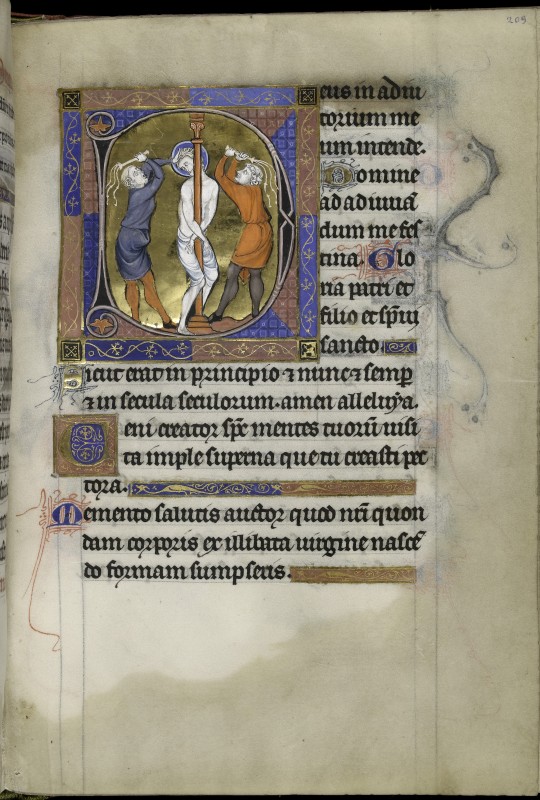 205
Deus in adiu
torium me
um intende.
Domine
ad adiuuā
dum me fes
tina. Glo
ria patri et
filio et sp̄ui
sancto.
Sicut erat in principio ⁊ nunc ⁊ semꝑ
⁊ in secula seculorum. amen alleluya.
Ueni creator sp̄c mentes tuorū uisi
ta imple superna que tu creasti pec
tora.
Memento salutis auctor quod nr̄i quon
dam corporis ex illibata uirgine nascē
do formam sumpseris.